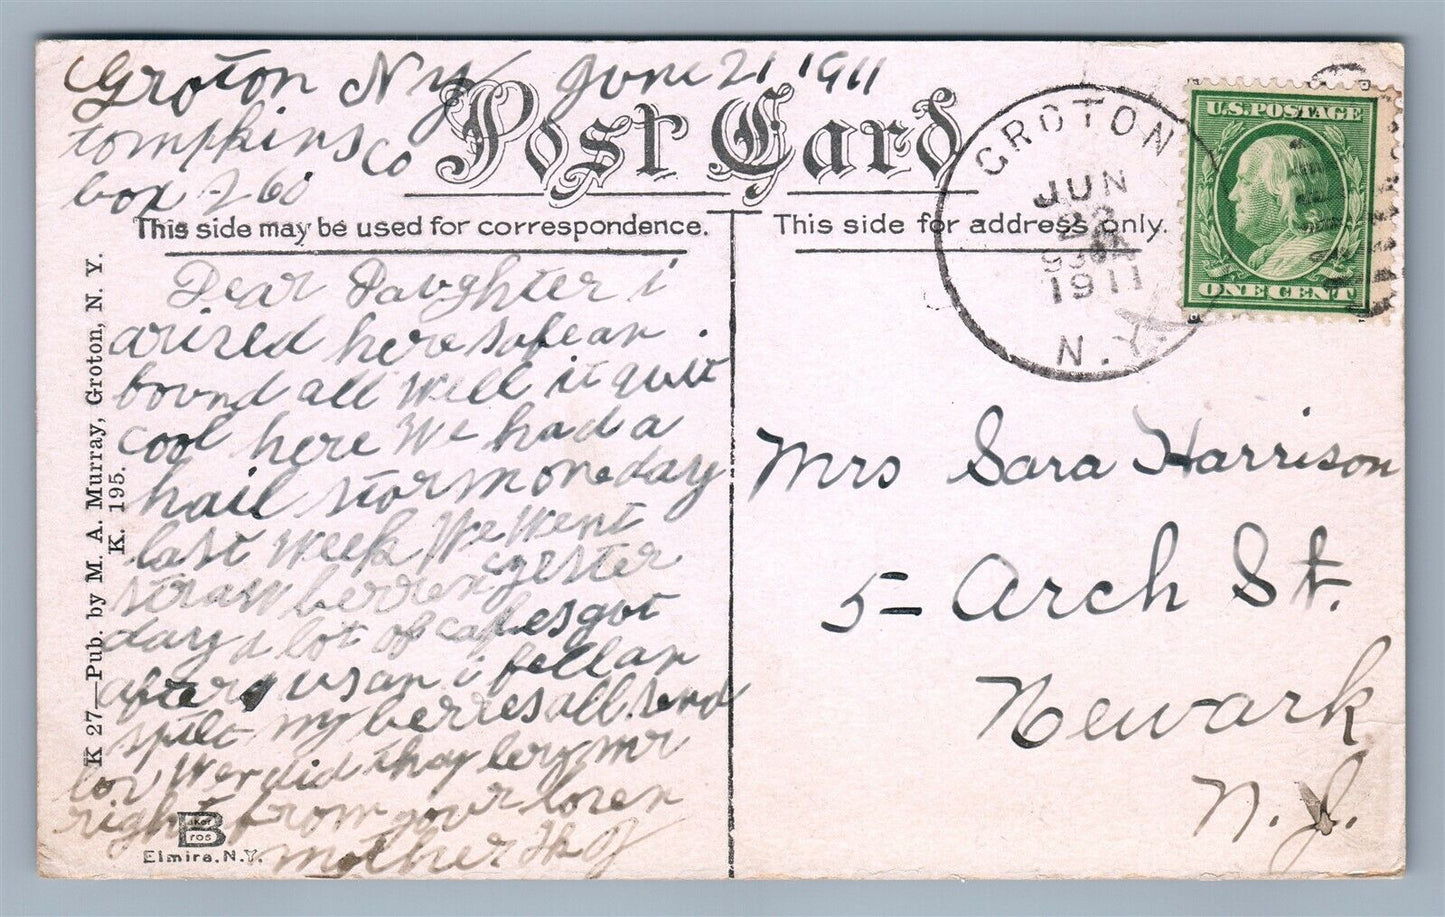 Groton N Y June 21 1911
tompkins Co
box 260
Post Card
This side may be used for correspondence.
This side for address only.
GROTON
JUN
23
1911
N.Y.
U.S. POSTAGE
ONE CENT
Dear Daughter i
arired here safe an
bound all well it quit
cool here We had a
hail storm on day
last week We Went
straw berren yester
day a lot of calfes got
after us an i fell an
spilt my berres all send
lov Wer did thay bery mr
right from your loven
mother
Mrs Sara Harrison
5 = Arch St.
Newark
N. J.
K 27—Pub. by M. A. Murray, Groton, N. Y.
K. 195.
Baker
Bros
Elmira, N.Y.